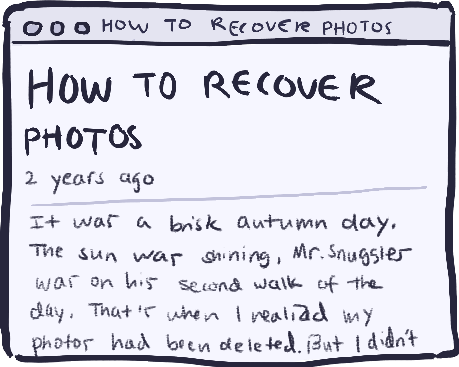 HOW TO RECOVER PHOTOS
HOW TO RECOVER
PHOTOS
2 years ago
It was a brisk autumn day.
The sun was shining, Mr. Snuggler
was on his second walk of the
day. That's when I realized my
photos had been deleted. But I didn't